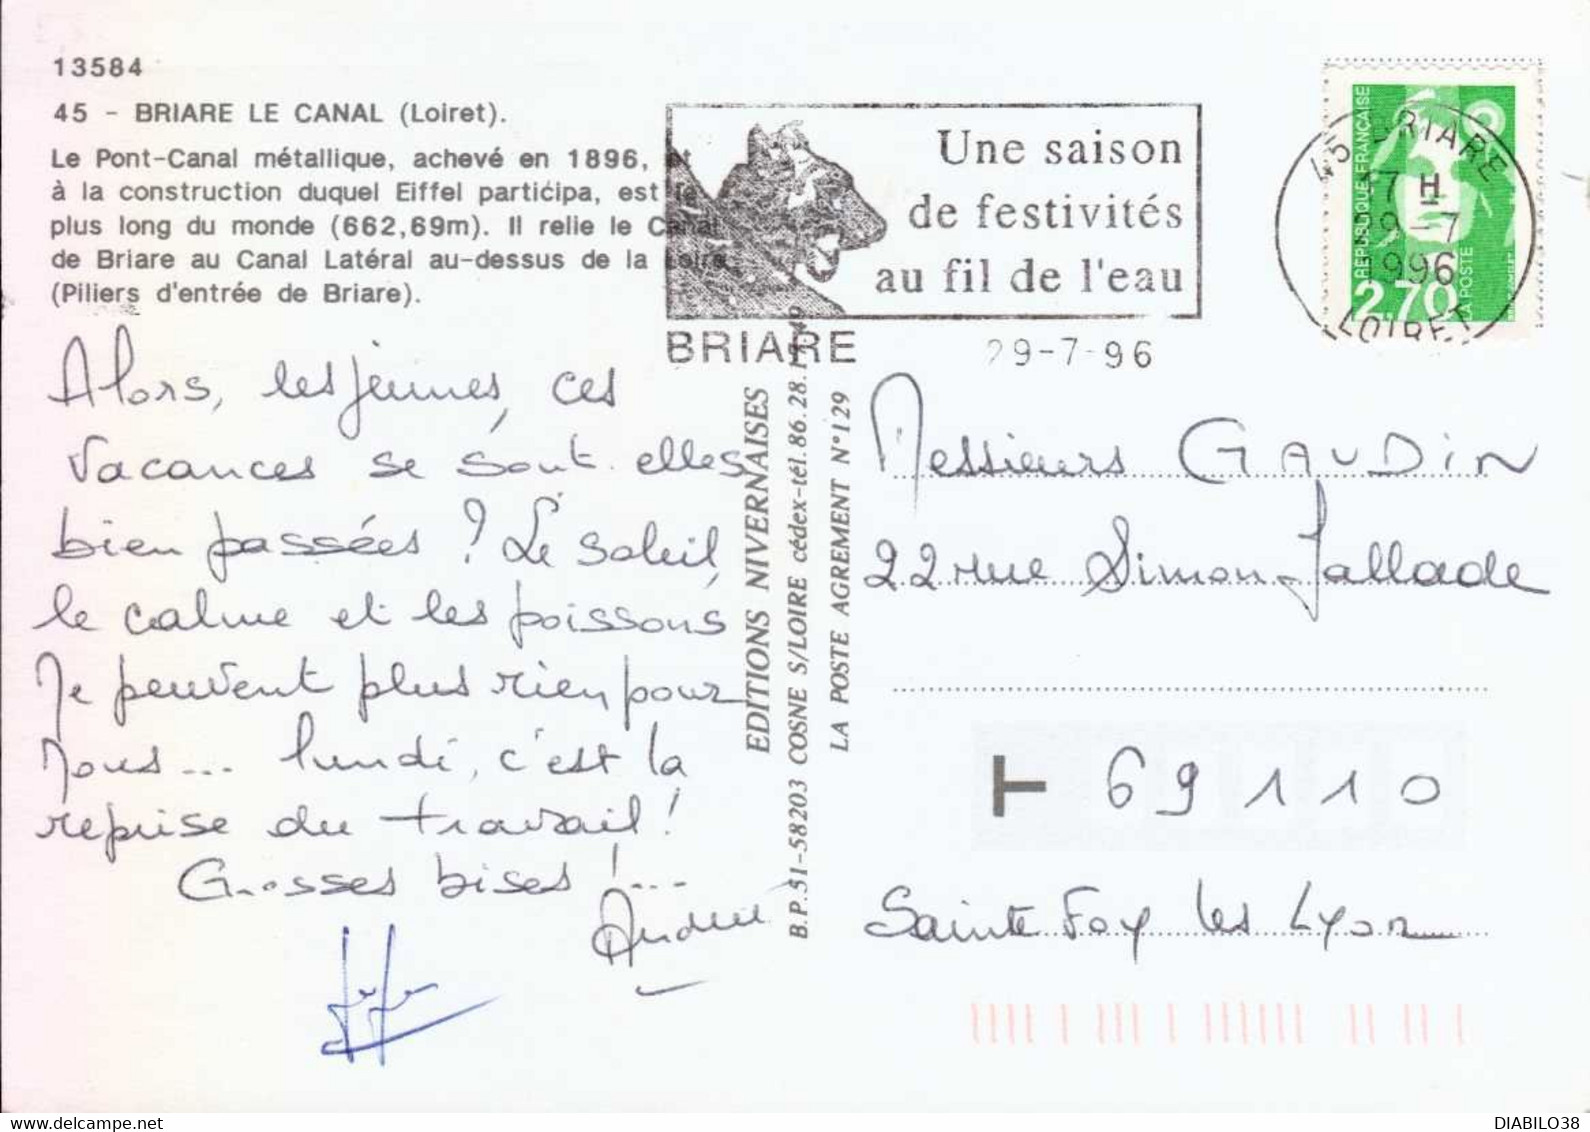 13584
45 - BRIARE LE CANAL (Loiret).
Le Pont-Canal métallique, achevé en 1896, et
à la construction duquel Eiffel participa, est le
plus long du monde (662,69m). Il relie le Canal
de Briare au Canal Latéral au-dessus de la Loire
(Piliers d'entrée de Briare).
Une saison
de festivités
au fil de l'eau
BRIARE
29-7-96
45 BRIARE
17 H
29-7
1996
LOIRET
REPUBLIQUE FRANÇAISE
2,70
LA POSTE
Alors, les jeunes, ces
vacances se sont elles
bien passées ? Le soleil,
le calme et les poissons
ne peuvent plus rien pour
nous... lundi, c'est la
reprise du travail !
Grosses bises !...
Andrée
EDITIONS NIVERNAISES
B.P. 51-58203 COSNE S/LOIRE cédex-tél. 86.28.
LA POSTE AGREMENT N° 129
Messieurs GAUDIN
22 rue Simon Jallade
T 69110
Sainte Foy les Lyon
DIABILO38